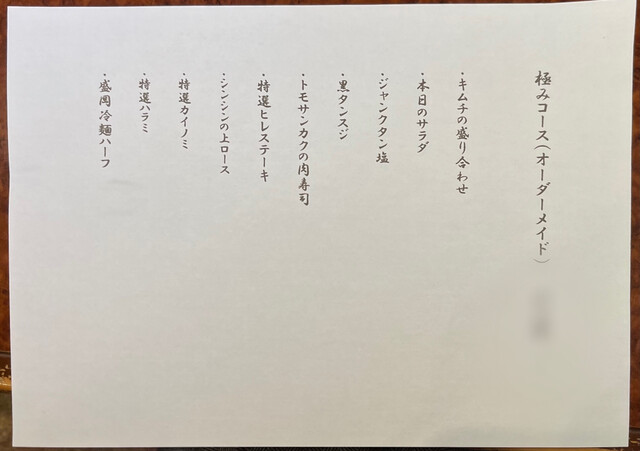 極みコース(オーダーメイド)
・キムチの盛り合わせ
・本日のサラダ
・ジャンクタン塩
・黒タンスジ
・トモサンカクの肉寿司
・特選ヒレステーキ
・シンシンの上ロース
・特選カイノミ
・特選ハラミ
・盛岡冷麺ハーフ